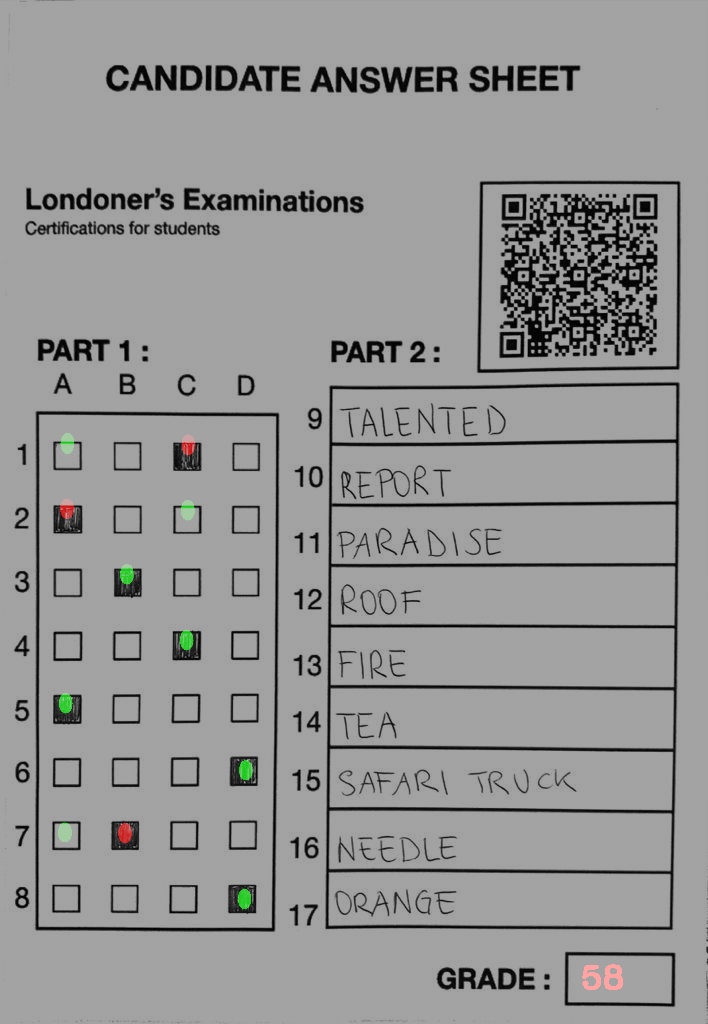 CANDIDATE ANSWER SHEET
Londoner's Examinations
Certifications for students
PART 1 :
A B C D
1
2
3
4
5
6
7
8
PART 2 :
9 TALENTED
10 REPORT
11 PARADISE
12 ROOF
13 FIRE
14 TEA
15 SAFARI TRUCK
16 NEEDLE
17 ORANGE
GRADE : 58